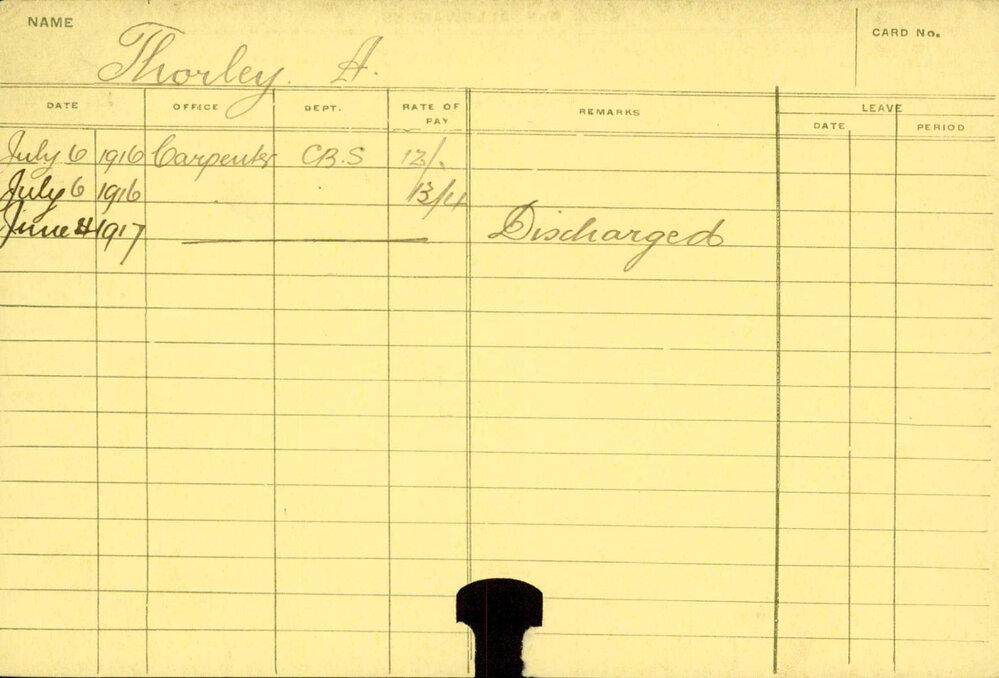 NAME Thorley. A. CARD No.
DATE OFFICE DEPT. RATE OF PAY REMARKS LEAVE
DATE PERIOD
July 6 1916 Carpenter C.B.S 12/.
July 6 1916 13/4
June 1917 Discharged